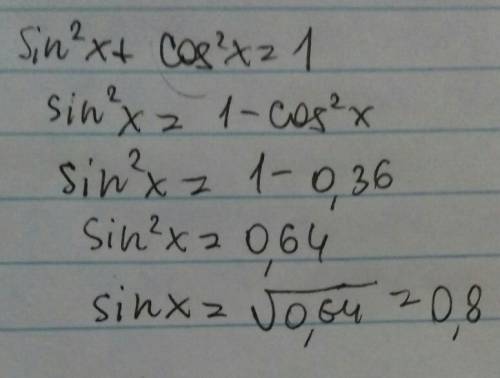 sin²x + cos²x = 1
sin²x = 1 - cos²x
sin²x = 1 - 0,36
sin²x = 0,64
sinx = √0,64 = 0,8